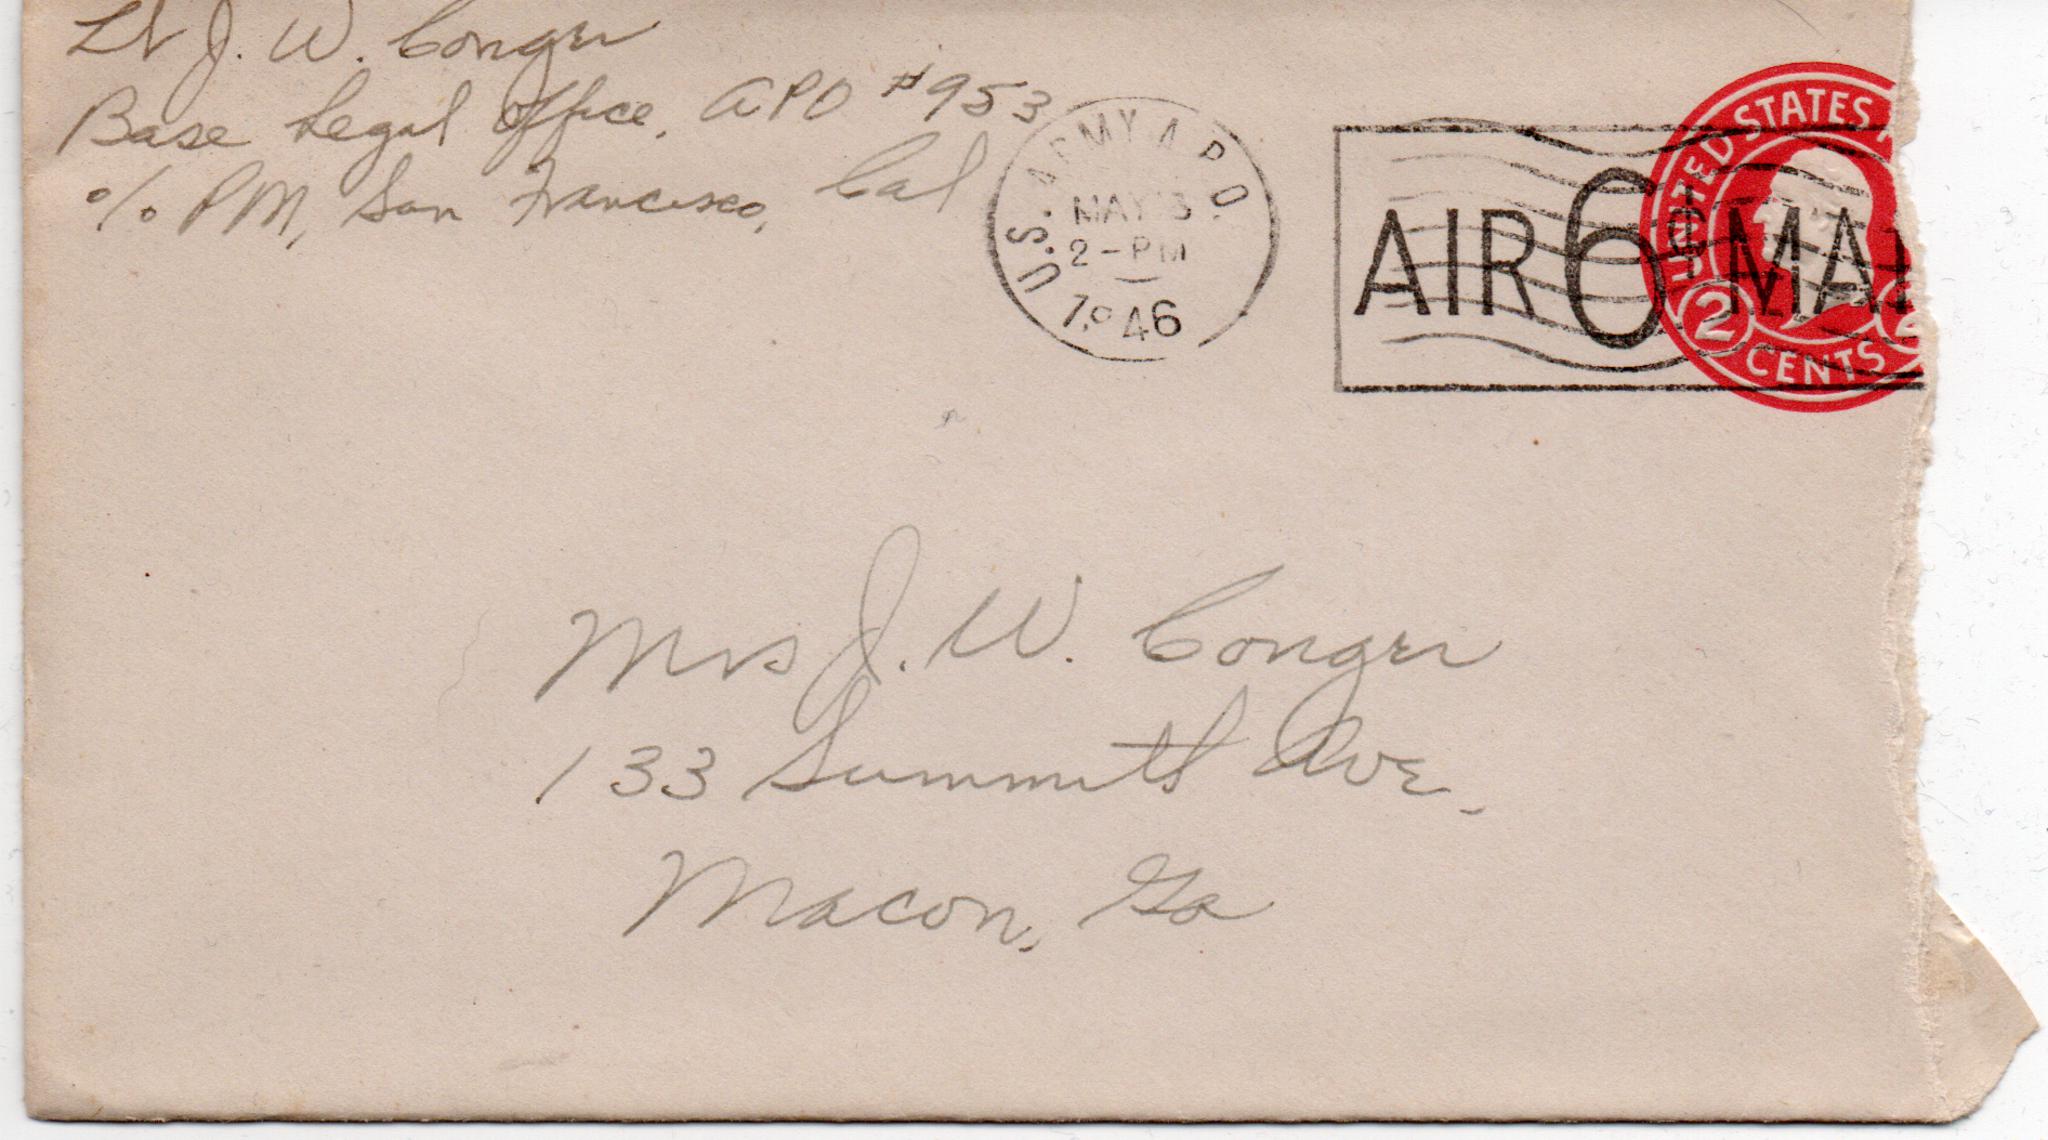 Lt J. W. Conger
Base Legal Office, APO #953
c/o PM, San Francisco, Cal
U.S. ARMY A.P.O.
MAY 13
2-PM
1946
AIR 6¢ MAI
UNITED STATES
2 CENTS 2
Mrs J. W. Conger
133 Summitt Ave.
Macon, Ga